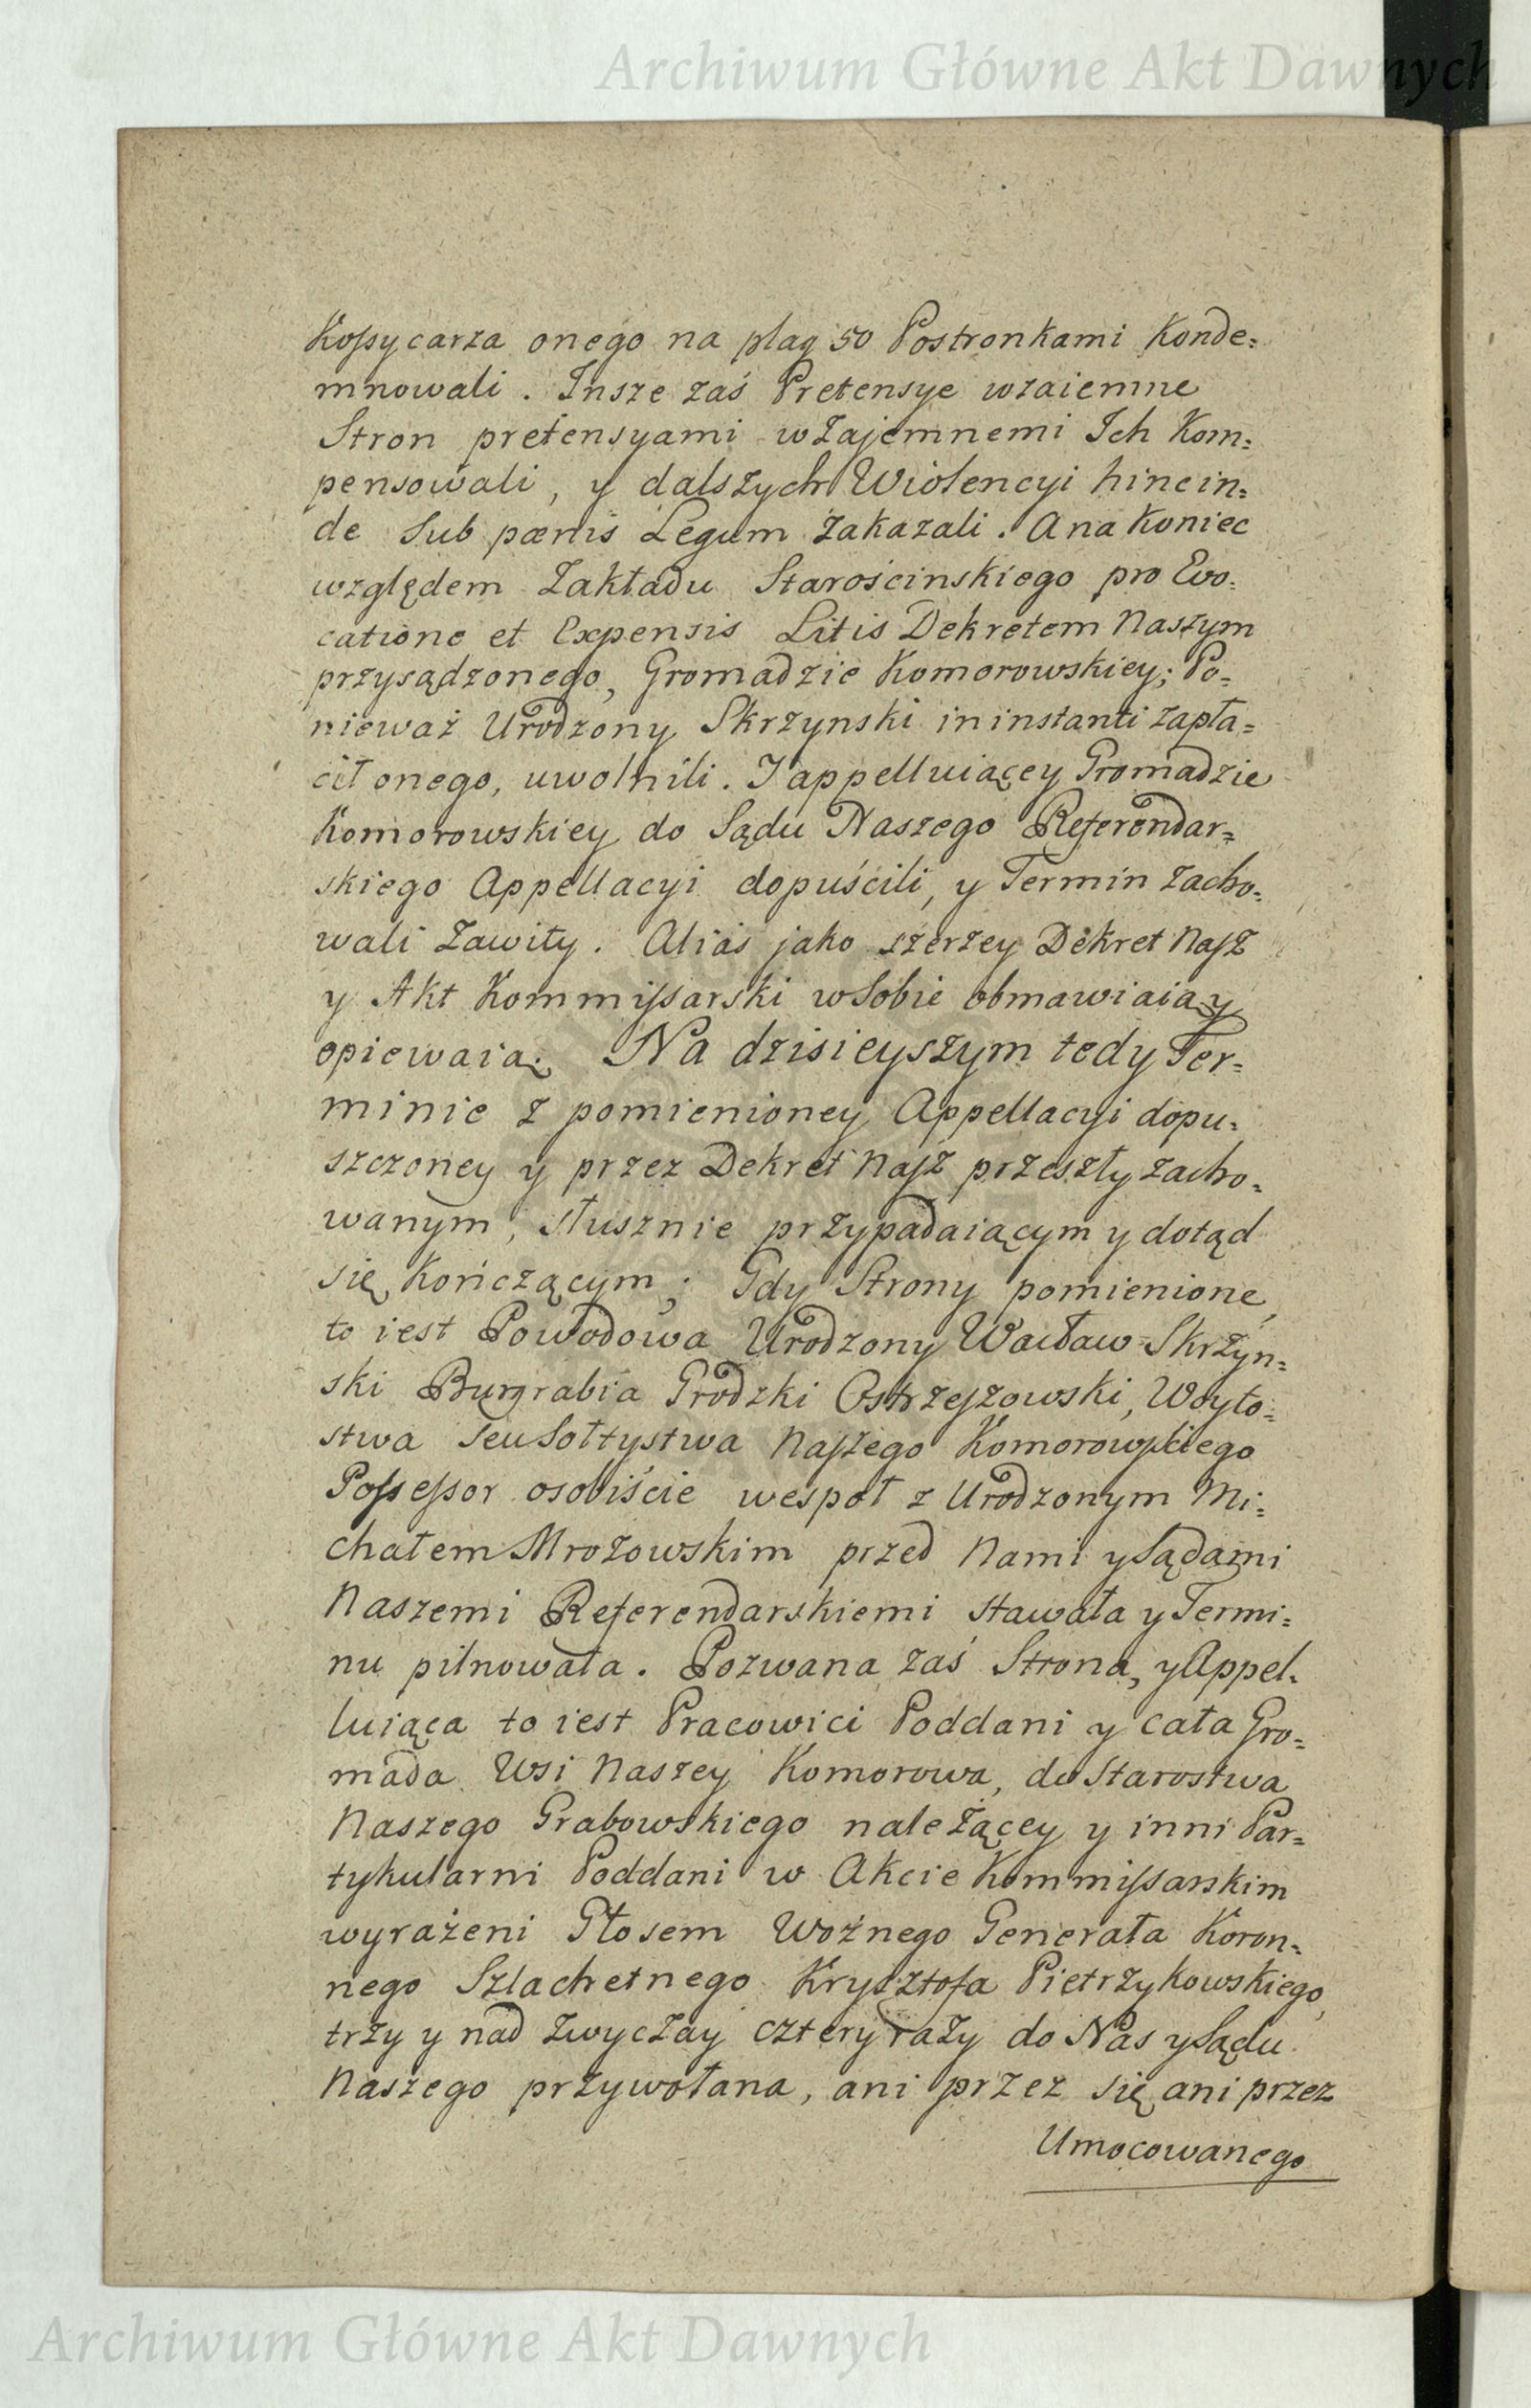 Archiwum Główne Akt Dawnych
Kossycarza onego na plag 50 Postronkami Konde=
mnowali. Insze zaś Pretensye wzaiemne
Stron pretensyami wzajemnemi Ich Kom=
pensowali, y dalszych Wiolencyi hincin=
de Sub pœnis Legum zakazali. Ana Koniec
względem Zakładu Starościnskiego pro Evo=
catione et Expensis Litis Dekretem Naszym
przysądzonego, Gromadzie Komorowskiey; Po=
nieważ Urodzony Skrzynski in instanti zapła=
cił onego, uwolnili. I appelluiącey Gromadzie
Komorowskiey do Sądu Naszego Referendar=
skiego Appellacyi dopuścili, y Termin zacho=
wali Zawity. Alias jako szerzey Dekret Nasz
y Akt Kommissarski wSobie obmawiaią y
opiewaią. Na dzisieyszym tedy Ter=
minie z pomienioney Appellacyi dopu=
szczoney y przez Dekret Nasz przeszły zacho=
wanym, słusznie przypadaiącym y dotąd
się kończącym; Gdy Strony pomienione,
to iest Powodowa Urodzony Wacław Skrzyn=
ski Burgrabia Grodzki Ostrzeszowski, Woyto=
stwa Seu Sołtystwa Naszego Komorowskiego
Possessor osobiście wespół z Urodzonym Mi=
chałem Mrozowskim przed Nami y Sądami
Naszemi Referendarskiemi stawała y Termi=
nu pilnowała. Pozwana zaś Strona, y Appel=
luiąca to iest Pracowici Poddani y cała Gro=
mada Wsi Naszey Komorowa, do Starostwa
Naszego Grabowskiego należącey y inni Par=
tykularni Poddani w Akcie Kommissarskim
wyrażeni Głosem Woźnego Generała Koron=
nego Szlachetnego Krysztofa Pietrzykowskiego,
trzy y nad zwyczay cztery razy do Nas y Sądu
Naszego przywołana, ani przez się ani przez
Umocowanego
Archiwum Główne Akt Dawnych